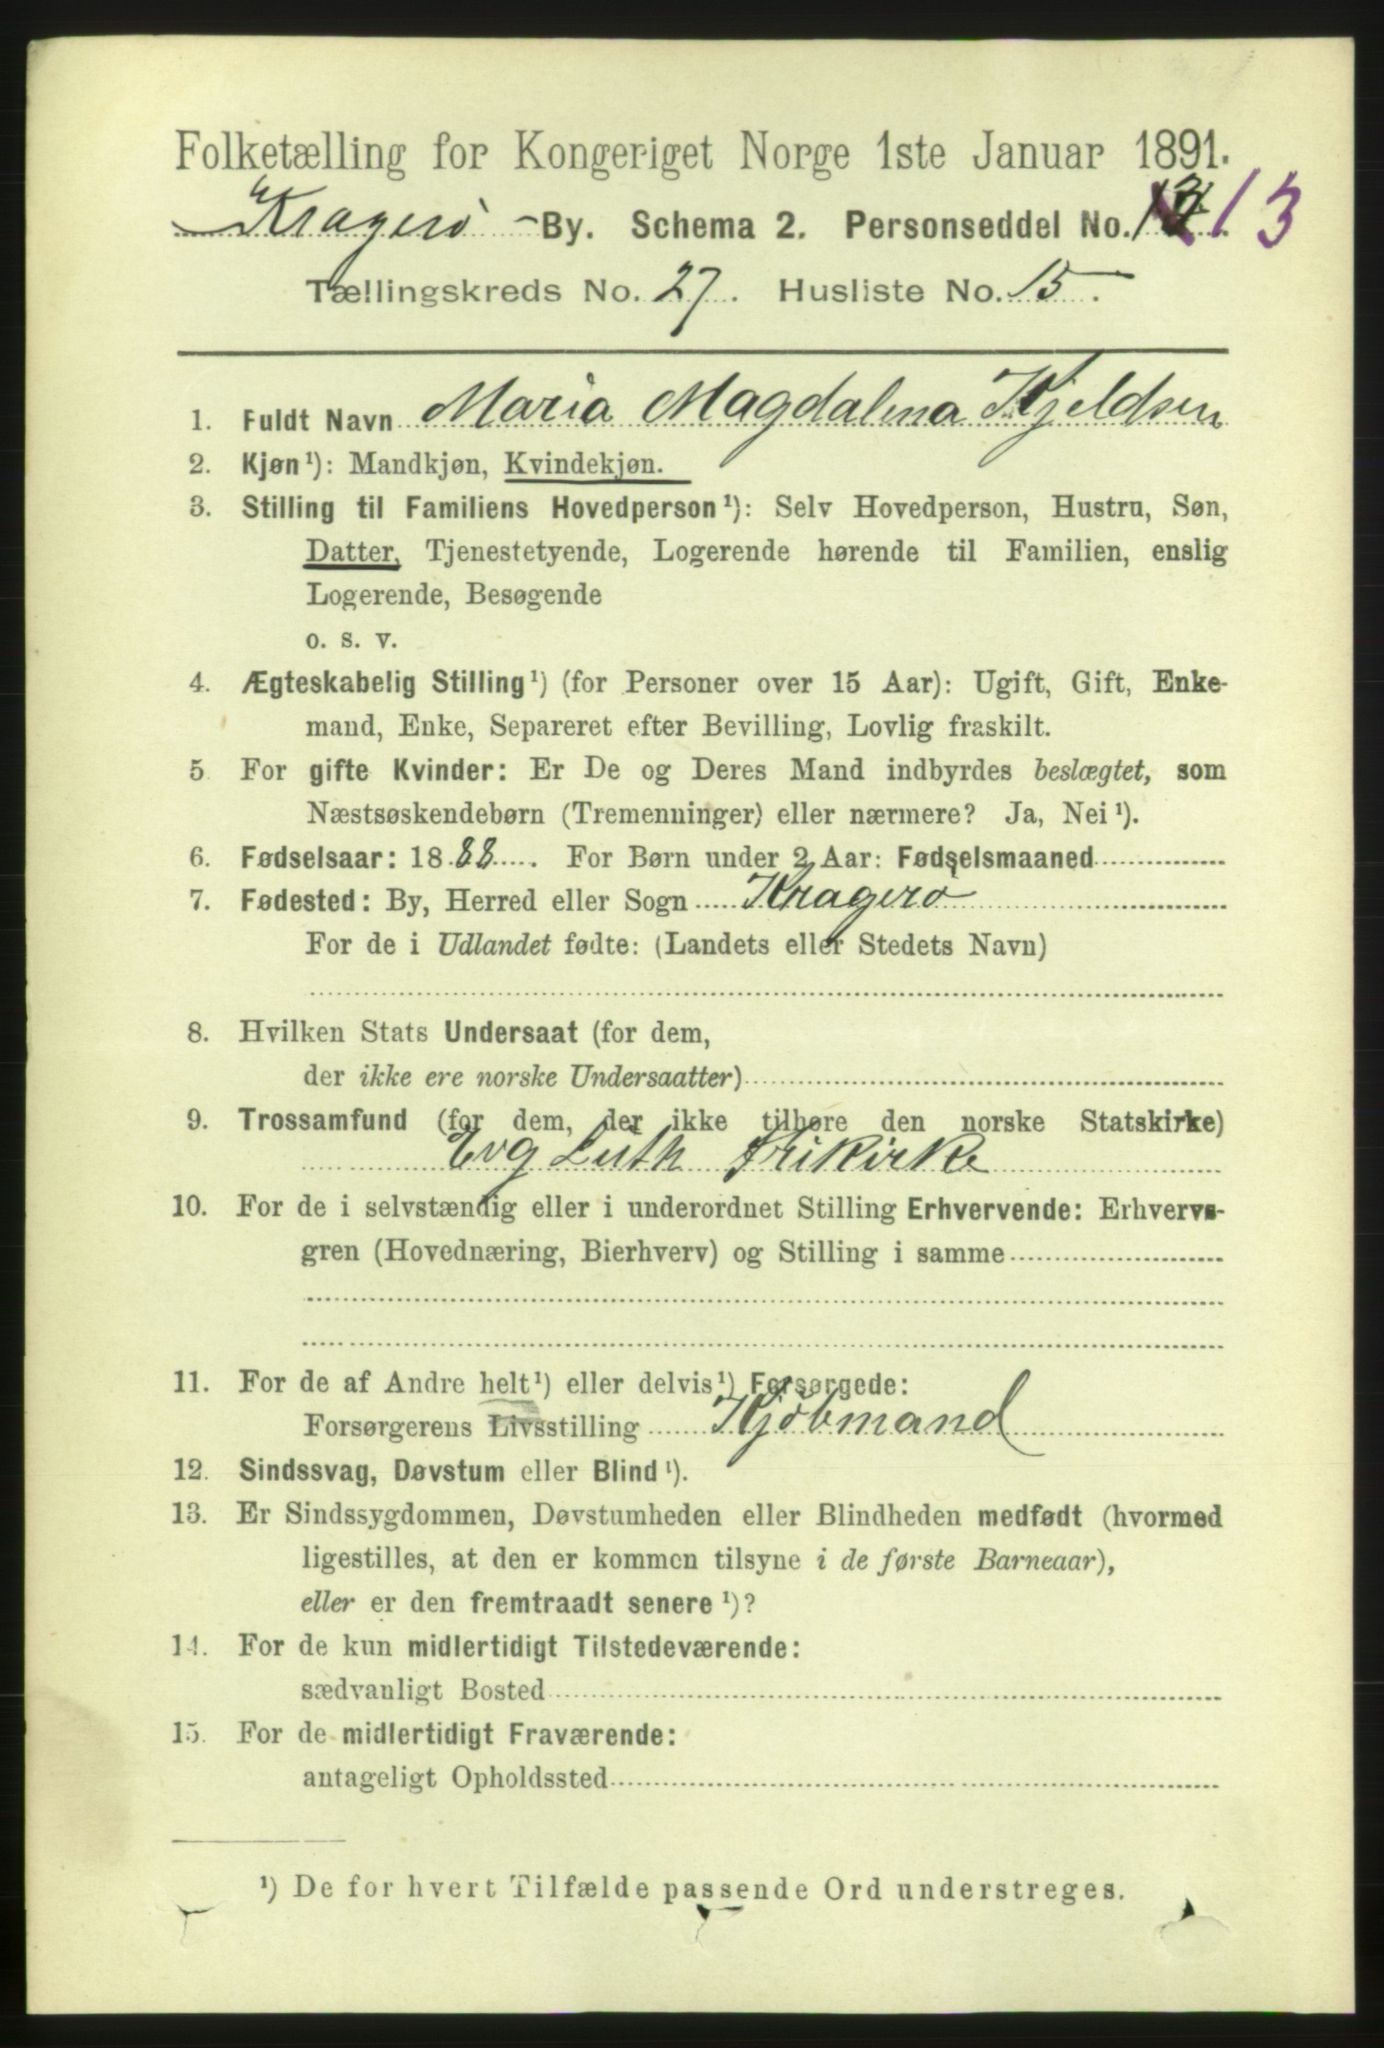 Folketælling for Kongeriget Norge 1ste Januar 1891.
Kragerø By. Schema 2. Personseddel No. 13
Tællingskreds No. 27. Husliste No. 15.
1. Fuldt Navn Maria Magdalena Kjeldsen
2. Kjøn¹): Mandkjøn, Kvindekjøn.
3. Stilling til Familiens Hovedperson¹): Selv Hovedperson, Hustru, Søn,
Datter, Tjenestetyende, Logerende hørende til Familien, enslig
Logerende, Besøgende
o. s. v.
4. Ægteskabelig Stilling¹) (for Personer over 15 Aar): Ugift, Gift, Enke-
mand, Enke, Separeret efter Bevilling, Lovlig fraskilt.
5 For gifte Kvinder: Er De og Deres Mand indbyrdes beslægtet, som
Næstsøskendebørn (Tremenninger) eller nærmere? Ja, Nei¹).
6. Fødselsaar: 1888. For Børn under 2 Aar: Fødselsmaaned
7. Fødested: By, Herred eller Sogn Kragerø
For de i Udlandet fødte: (Landets eller Stedets Navn)
8. Hvilken Stats Undersaat (for dem,
der ikke ere norske Undersaatter)
9. Trossamfund (for dem, der ikke tilhøre den norske Statskirke)
Evg Luth Frikirke
10. For de i selvstændig eller i underordnet Stilling Erhvervende: Erhvervs-
gren (Hovednæring, Bierhverv) og Stilling i samme
11. For de af Andre helt¹) eller delvis¹) Forsørgede:
Forsørgerens Livsstilling Kjöbmand
12. Sindssvag, Døvstum eller Blind¹).
13. Er Sindssygdommen, Døvstumheden eller Blindheden medfødt (hvormed
ligestilles, at den er kommen tilsyne i de første Barneaar),
eller er den fremtraadt senere¹)?
14. For de kun midlertidigt Tilstedeværende:
sædvanligt Bosted
15. For de midlertidigt Fraværende:
antageligt Opholdssted
¹) De for hvert Tilfælde passende Ord understreges.